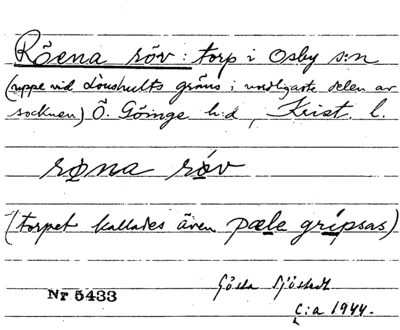 Röena röv: torp i Osby s:n
(uppe vid Loushults gräns i nordligaste delen av
socknen) Ö. Göinge h:d, Krist. l.
røna røv
(torpet kallades även pæle grípsas)
Nr 5433
Gösta Sjöstedt
c:a 1944.